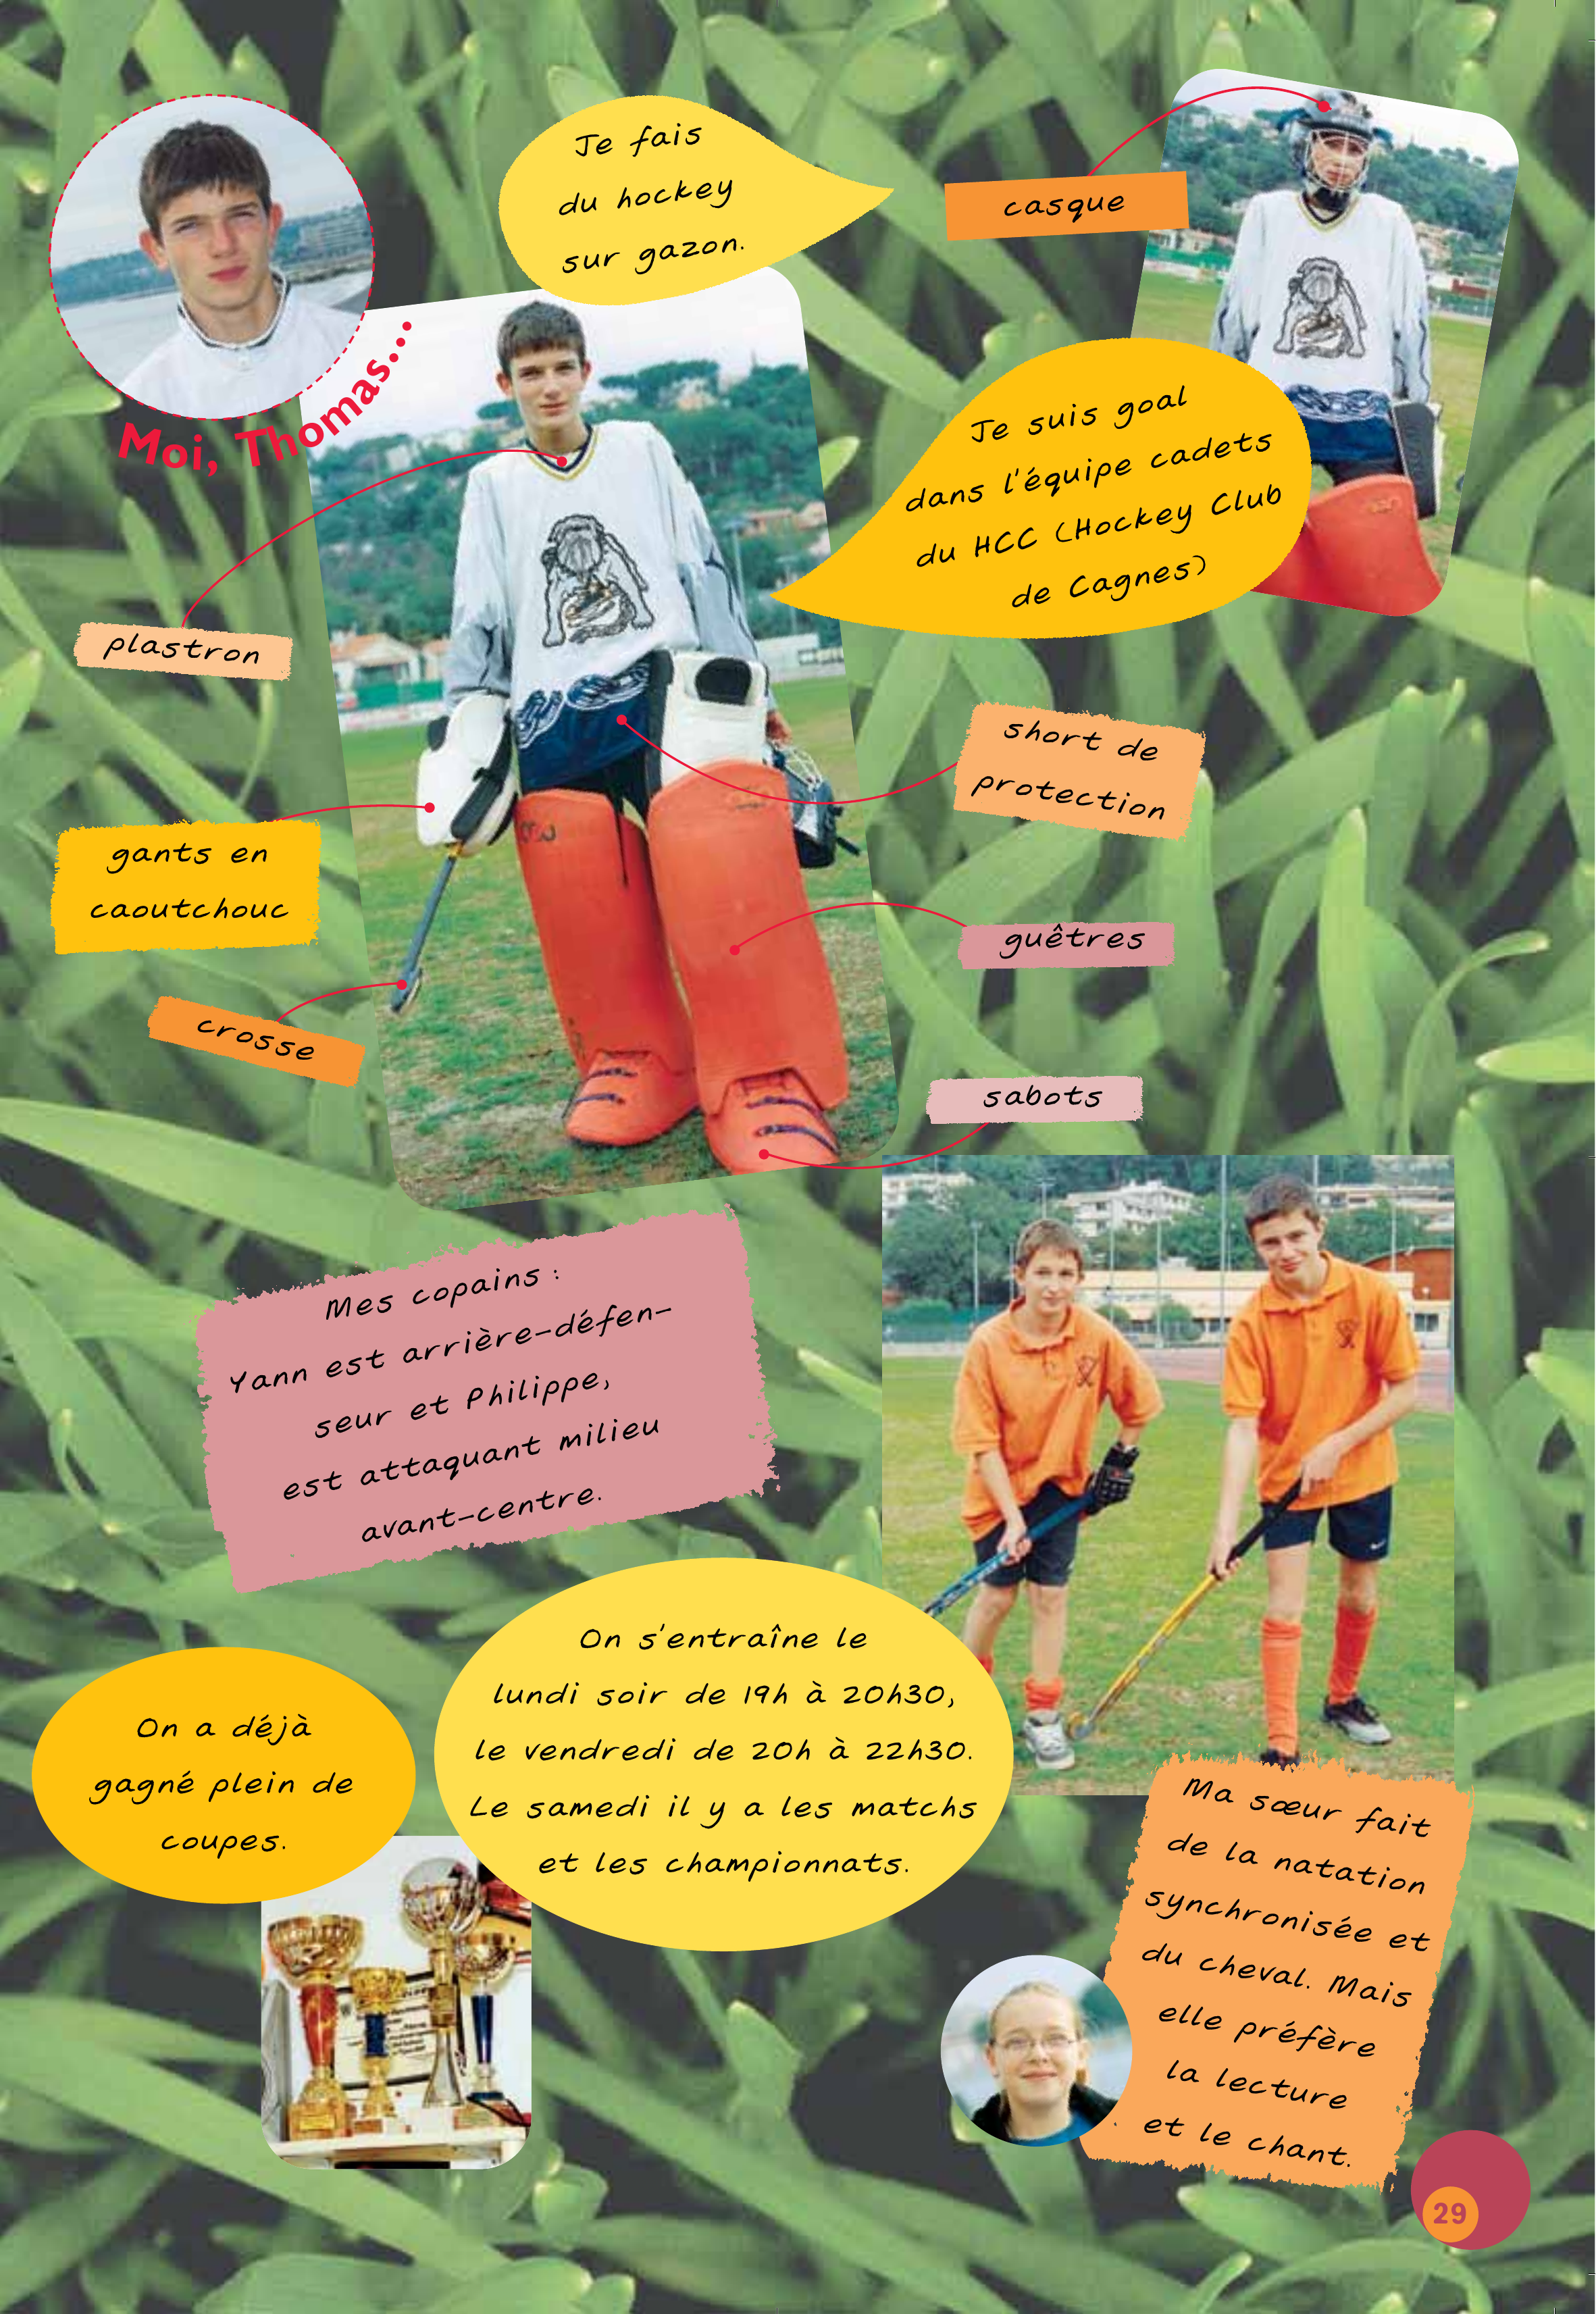 Moi, Thomas...
Je fais
du hockey
sur gazon.
casque
Je suis goal
dans l'équipe cadets
du HCC (Hockey Club
de Cagnes)
plastron
short de
protection
gants en
caoutchouc
guêtres
crosse
sabots
Mes copains :
Yann est arrière-défen-
seur et Philippe,
est attaquant milieu
avant-centre.
On s'entraîne le
lundi soir de 19h à 20h30,
le vendredi de 20h à 22h30.
Le samedi il y a les matchs
et les championnats.
On a déjà
gagné plein de
coupes.
Ma sœur fait
de la natation
synchronisée et
du cheval. Mais
elle préfère
la lecture
et le chant.
29